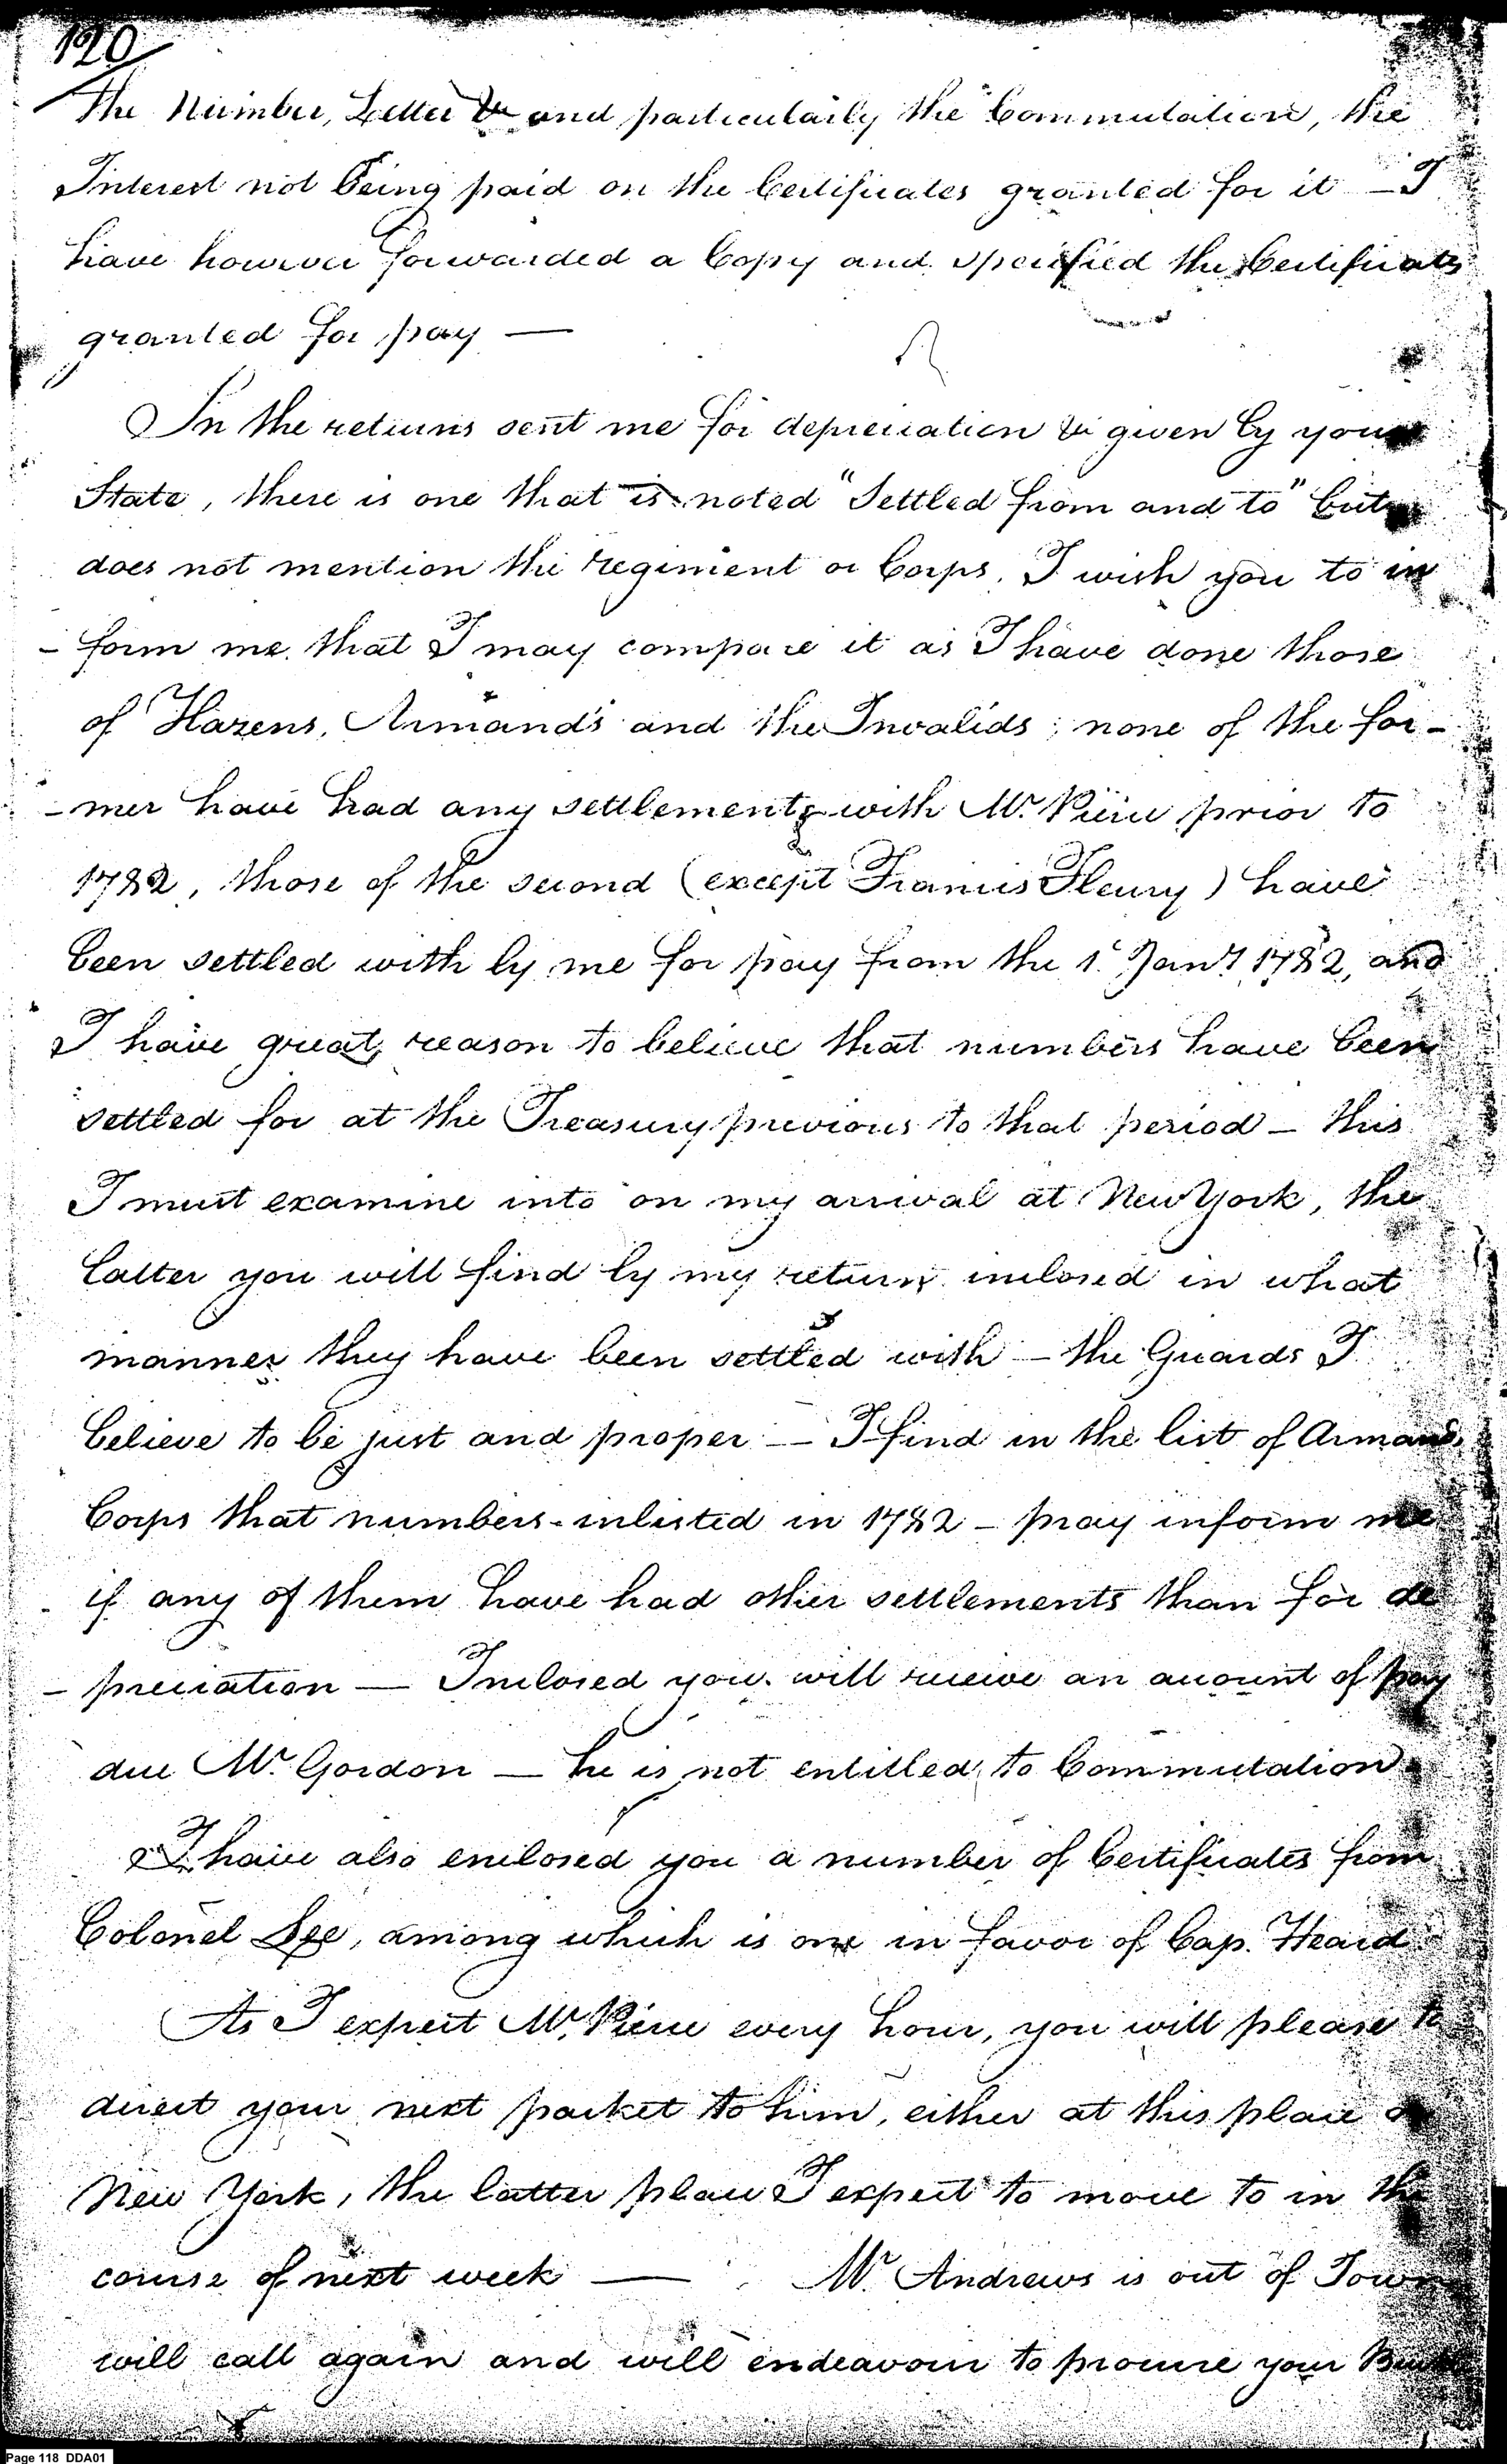 120
the Number, Letter &c and particularly the Commutation, the
Interest not being paid on the Certificates granted for it — I
have however forwarded a Copy and specified the Certificates
granted for pay —
In the returns sent me for depreciation &c given by your
State, there is one that is noted "Settled from and to" but
does not mention the regiment or Corps. I wish you to in
- form me that I may compare it as I have done those
of Hazens, Armand's and the Invalids; none of the for-
- mer have had any settlements with Mr. Pierce prior to
1782, those of the second (except Francis Fleury) have
been settled with by me for pay from the 1st Jany 1782, and
I have great reason to believe that numbers have been
settled for at the Treasury previous to that period — this
I must examine into on my arrival at New York, the
latter you will find by my return inclosed in what
manner they have been settled with — the Guards I
believe to be just and proper — I find in the list of Armands
Corps that numbers inlisted in 1782 — pray inform me
if any of them have had other settlements than for de
- preciation — Inclosed you will receive an account of pay
due Mr. Gordon — he is not entitled to Commutation
I have also enclosed you a number of Certificates from
Colonel Lee, among which is one in favor of Cap. Heard
As I expect Mr. Pierce every hour, you will please to
direct your next packet to him, either at this place or
New York, the latter place I expect to move to in the
course of next week — Mr. Andrews is out of Town
will call again and will endeavour to procure your
Page 118 DDA01